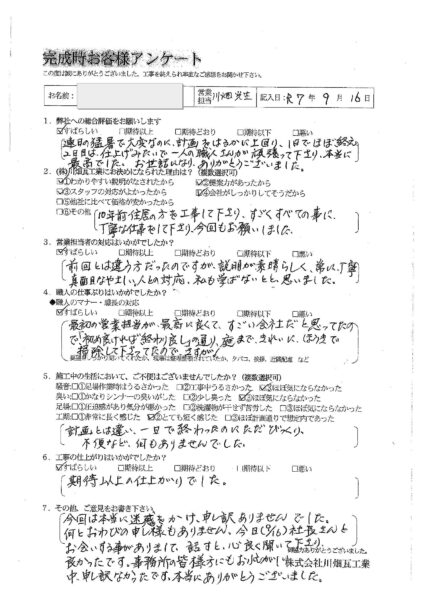 完成時お客様アンケート
この度は誠にありがとうございました。工事を終えられ率直なご感想をお聞かせ下さい。
お名前：
営業担当 川畑
記入日：R7年9月16日
1．弊社への総合評価をお願いします
☑すばらしい □期待以上 □期待どおり □期待以下 □悪い
連日の猛暑で大変なのに、計画をはるかに上回り、1日でほぼ終え
2日目は、仕上げみたいで一人の職人さんが頑張って下さり、本当に
最高でした。お世話になり、ありがとうございました。
2．(株)川畑瓦工業にお決めになられた理由は？（複数選択可）
☑①わかりやすい説明がなされたから ☑②提案力があったから
☑③スタッフの対応が良かったから ☑④会社がしっかりしてそうだから
□⑤他社に比べて価格が安かったから
□⑥その他
10年前住居の方を工事して下さり、すごくすべての事に、
丁寧な仕事をして下さり、今回もお願いしました。
3．営業担当者の対応はいかがでしたか？
☑すばらしい □期待以上 □期待どおり □期待以下 □悪い
前回とは違う方だったのですが、説明が素晴らしく、常に、丁寧
真面目なやさしい人との対応、私も学ばないとと、思いました。
4．職人の仕事ぶりはいかがでしたか？
●職人のマナー・現場の対応
☑すばらしい □期待以上 □期待どおり □期待以下 □悪い
最初の営業担当が、最高に良くて、すごい会社だと思ってたの
で「初め良ければ終わり良し」の通り、施まで、きれいに、ほうきで
掃除して下さってたので、さすが!
5．施工中の生活において、ご不便はございませんでしたか？（複数選択可）
騒音：□①足場作業時はうるさかった □②工事中うるさかった ☑③ほぼ気にならなかった
臭い：□①かなりシンナーの臭いがした □②少し臭った ☑③ほぼ気にならなかった
足場：□①圧迫感があり気分が悪かった □②洗濯物が干せず苦労した □③ほぼ気にならなかった
工期：□①非常に長く感じた ☑②とても短く感じた □③ほぼ計画通りで想定内であった
計画とは違い、一日で終わったのにただびっくり。
不便など、何もありませんでした。
6．工事の仕上がりはいかがでしたか？
☑すばらしい □期待以上 □期待どおり □期待以下 □悪い
期待以上の仕上がりでした。
7．その他、ご意見をお書き下さい。
今回は本当に迷惑をかけ、申し訳ありませんでした。
何とおわびの申し様もありません、今日(9/16)社長さんと
お会いする事がありまして、話すと、心良く聞いて下さり、
良かったです。事務所の皆様方にもお忙がしい
中、申し訳なかったです。本当にありがとうございました。
ご協力ありがとうございました。
株式会社川畑瓦工業